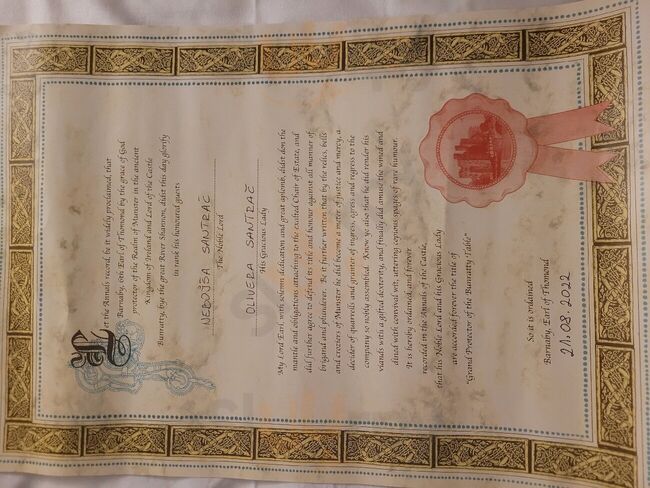 Let the Annals record, be it widely proclaimed, that
Barnaby, 6th Earl of Thomond by the grace of God
protector of the Realm of Munster in the ancient
Kingdom of Ireland and Lord of the Castle
Bunratty, bye the great River Shannon, didst this day glorify
in rank his honoured guests
NEBOJŠA SANTRAČ
The Noble Lord
OLIVERA SANTRAČ
His Gracious Lady
My Lord Earl, with solemn dedication and great aplomb, didst don the
mantle and obligations attaching to the exalted Chair of Estate, and
did further agree to defend its title and honour against all manner of
brigand and plunderer. Be it further written that by the relics, bells
and croziers of Munster he did become a meter of justice and mercy, a
decider of quarrels and granter of ingress, egress and regress to the
company so nobly assembled. Know ye also that he did render his
viands with a gifted dexterity, and finally did amuse the wined and
dined with convival wit, uttering copious spates of rare humour.
It is hereby ordained, and forever
recorded in the Annals of the Castle,
that his Noble Lord and his Gracious Lady
are accorded forever the title of
"Grand Protector of the Bunratty Table"
So it is ordained
Barnaby, Earl of Thomond
21.08.2022